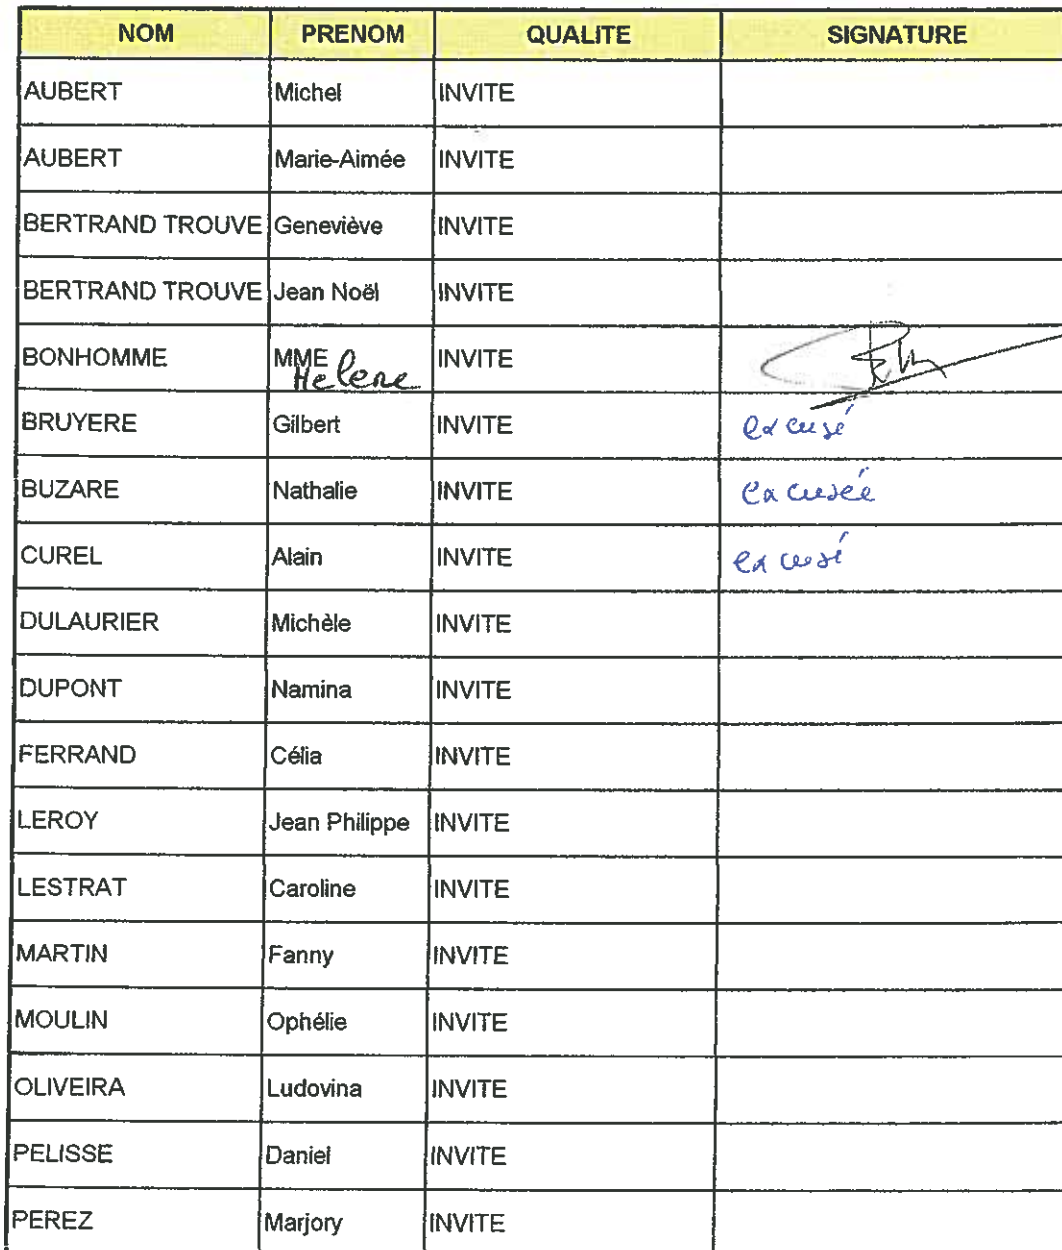 NOM PRENOM QUALITE SIGNATURE
AUBERT Michel INVITE
AUBERT Marie-Aimée INVITE
BERTRAND TROUVE Geneviève INVITE
BERTRAND TROUVE Jean Noël INVITE
BONHOMME MME INVITE
Helene
BRUYERE Gilbert INVITE excusé
BUZARE Nathalie INVITE excusée
CUREL Alain INVITE excusé
DULAURIER Michèle INVITE
DUPONT Namina INVITE
FERRAND Célia INVITE
LEROY Jean Philippe INVITE
LESTRAT Caroline INVITE
MARTIN Fanny INVITE
MOULIN Ophélie INVITE
OLIVEIRA Ludovina INVITE
PELISSE Daniel INVITE
PEREZ Marjory INVITE